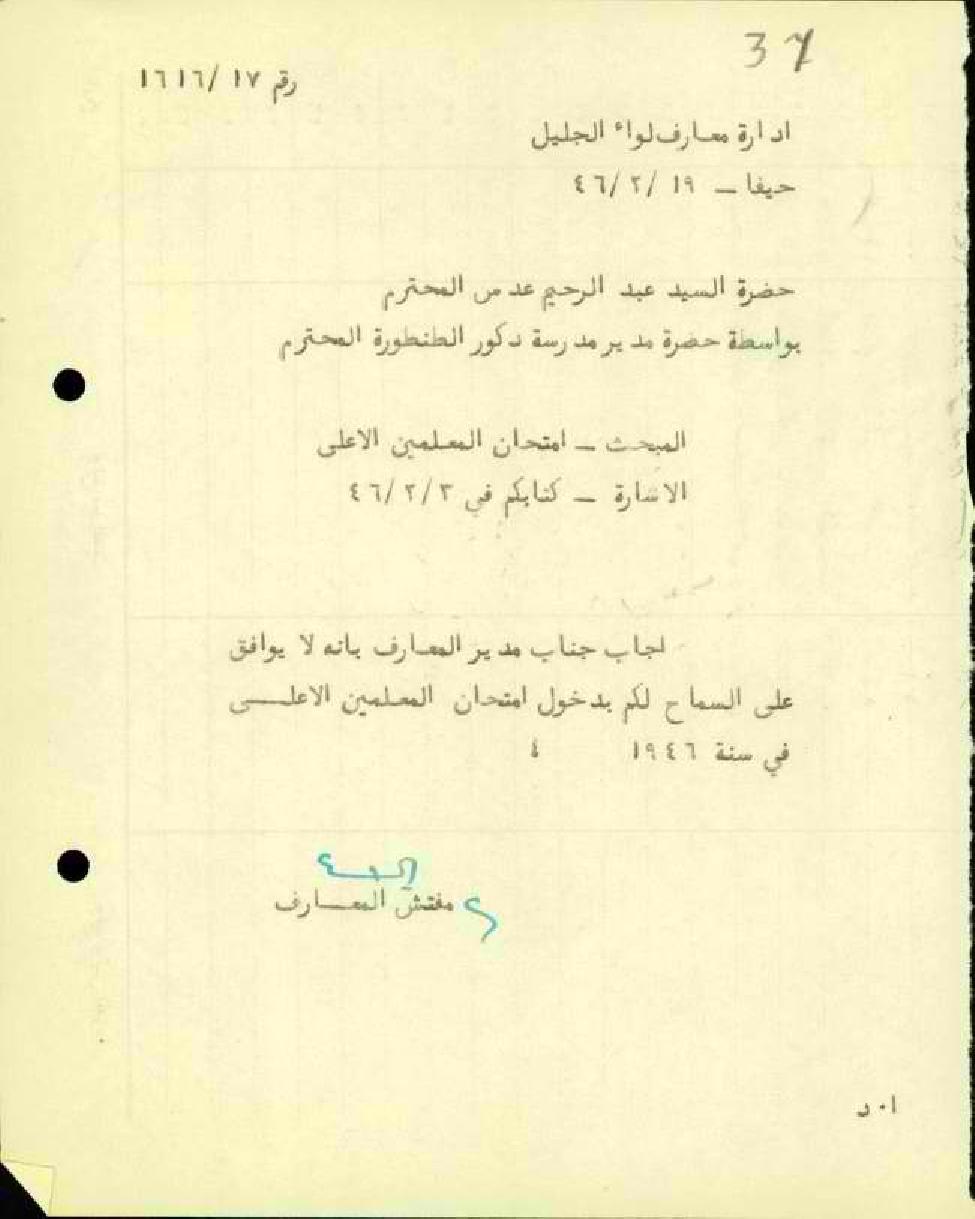 37
رقم ١٧ /١٦١٦
ادارة معارف لواء الجليل
حيفا ــ ١٩ /٢ /٤٦
حضرة السيد عبد الرحيم عدس المحترم
بواسطة حضرة مدير مدرسة ذكور الطنطورة المحترم
المبحث ــ امتحان المعلمين الاعلى
الاشارة ــ كتابكم في ٤٦/٢/٣
اجاب جناب مدير المعارف بانه لا يوافق
على السماح لكم بدخول امتحان المعلمين الاعلــى
في سنة ١٩٤٦ ٤
مفتش المعــارف
ا٠ د